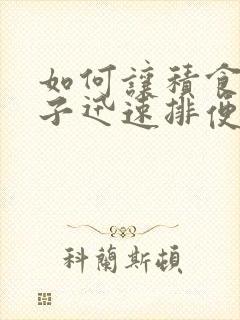 如何讓積食
子迅速排便
科蘭斯頓